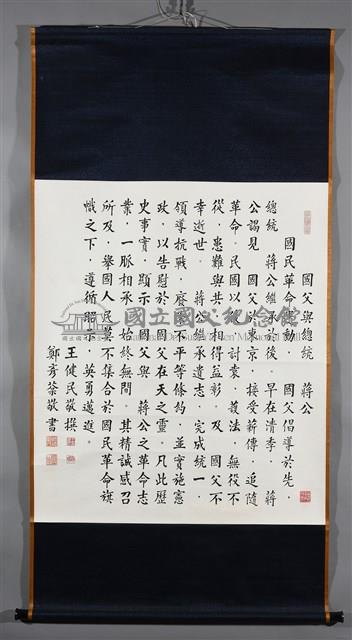 國父與總統　蔣公
國民革命運動，　國父倡導於先，
總統　蔣公繼承於後。早在清季，蔣
公謁見　國父於東京，接受薪傳，追隨
革命。民國以後，討袁、護法，無役不
從，患難與共，相得益彰。及　國父不
幸逝世。　蔣公繼承遺志，完成統一，
領導抗戰，廢除不平等條約，並實施憲
政，以告慰於　國父在天之靈。凡此歷
史事實，顯示　國父與　蔣公之革命志
業，一脈相承，始終無間。其精誠感召
所及，舉國人民莫不集合於國民革命旗
幟之下，遵循昭示，英勇邁進。
王健民敬撰
鄭彥棻敬書
國立國父紀念館